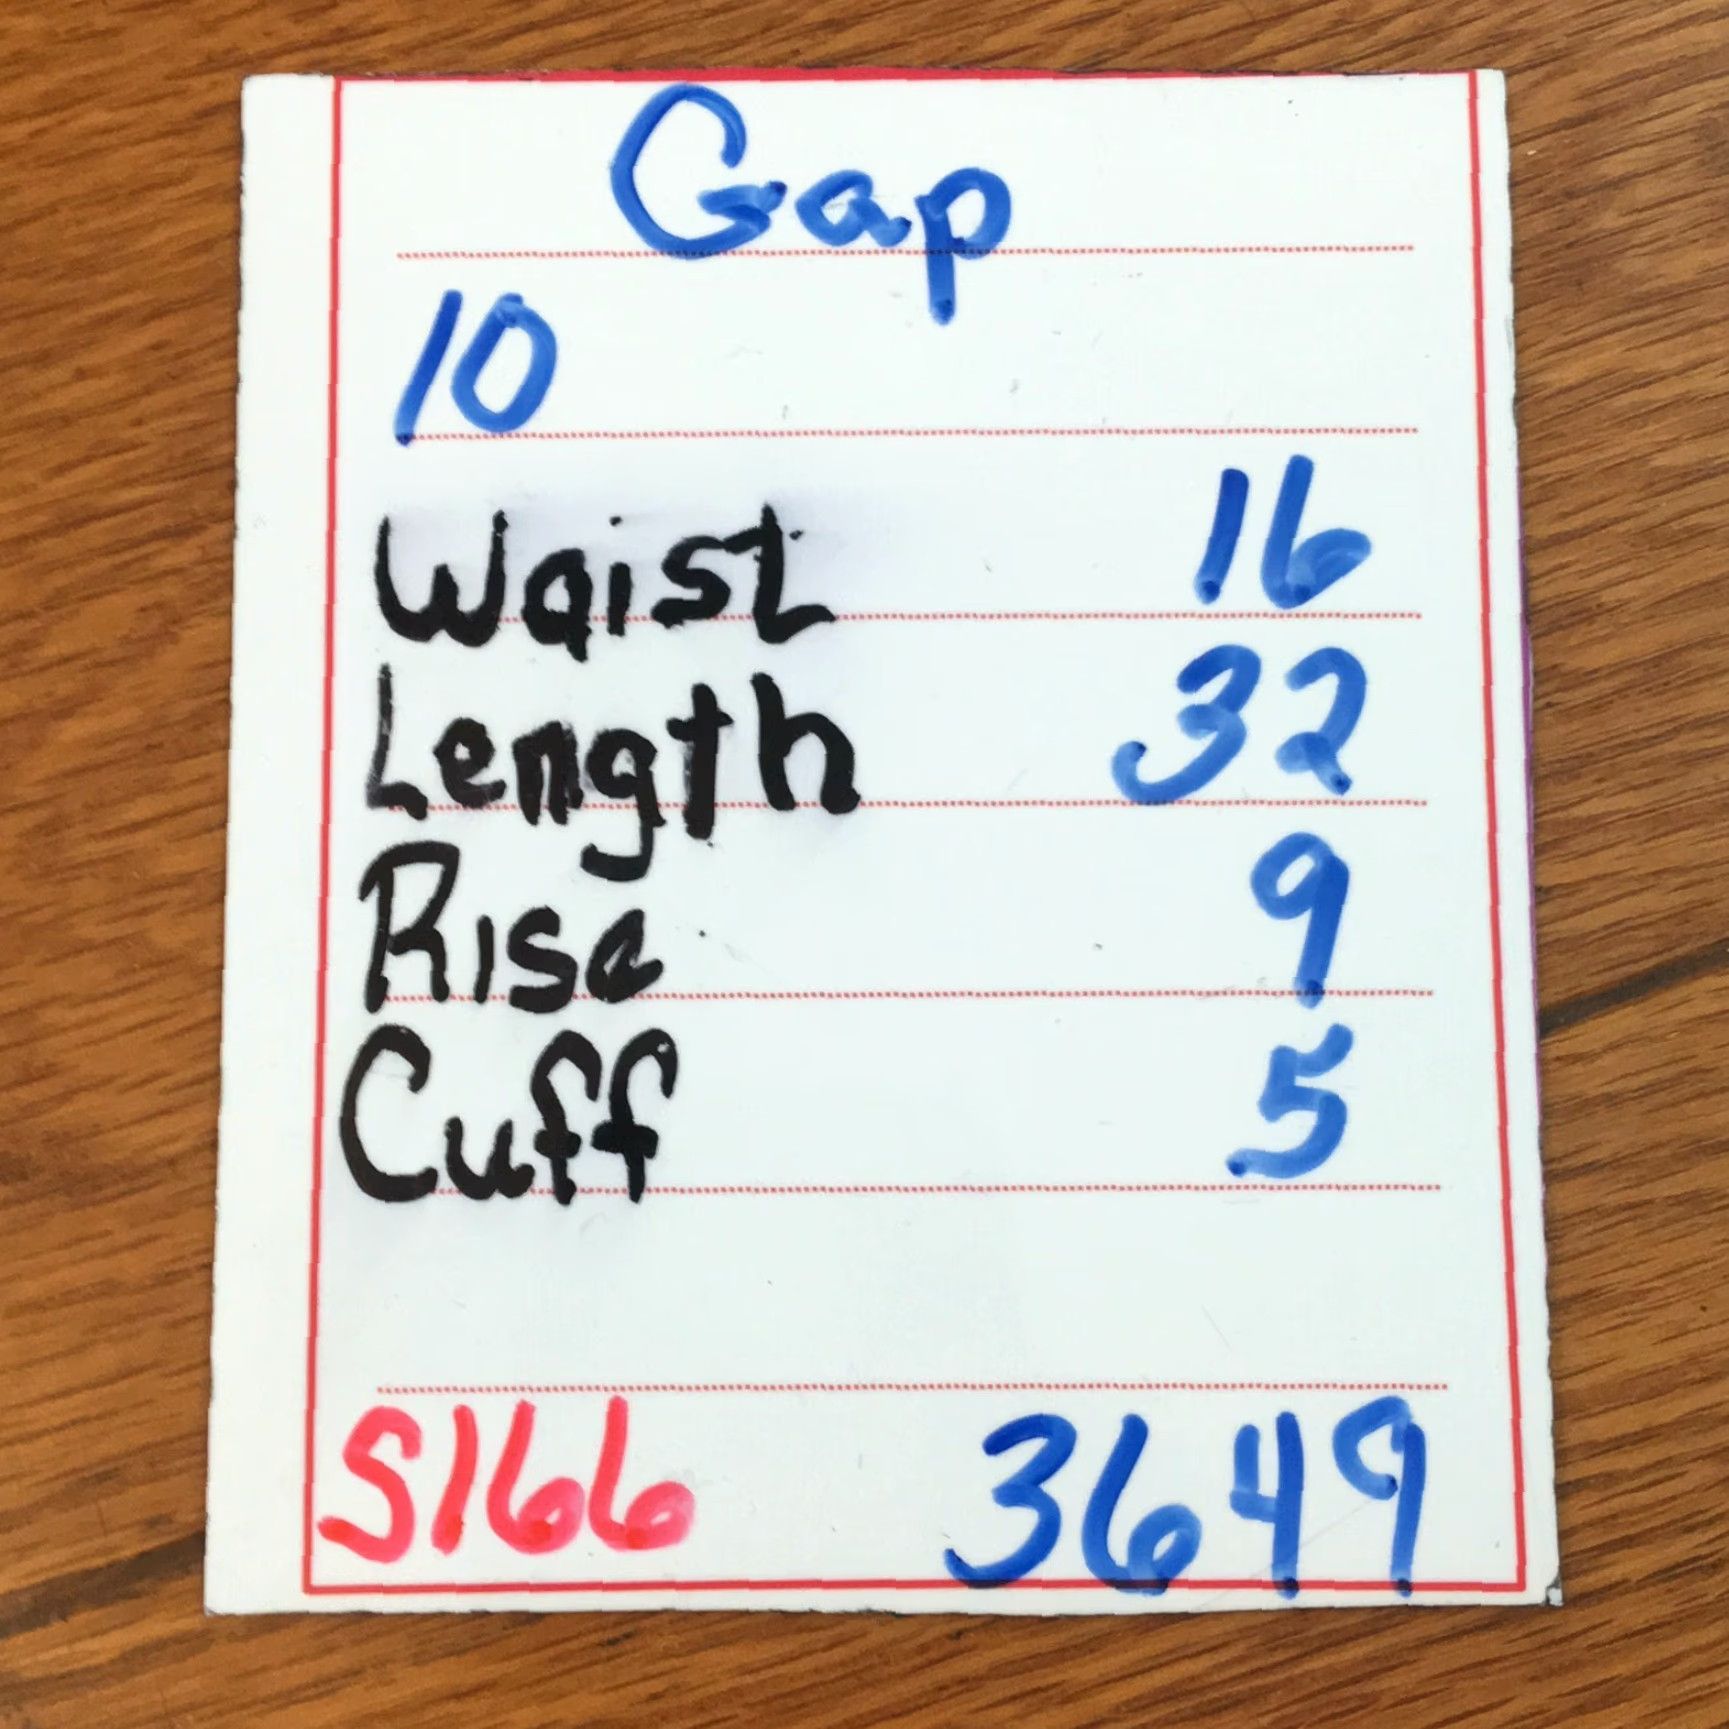 Gap
10
Waist 16
Length 32
Rise 9
Cuff 5
S166 3649